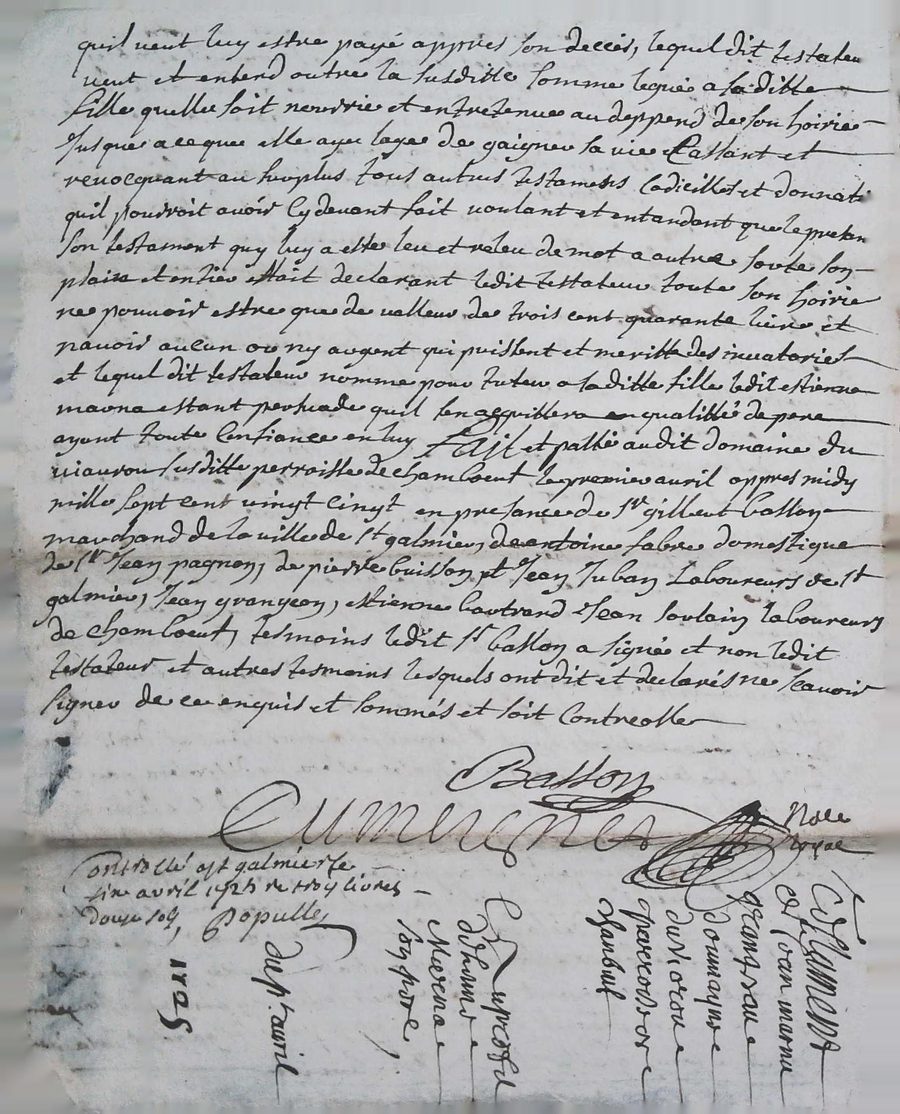 quil veut luy estre payé appres son decces, lequel dit testateur
veut et entend outre la susditte somme leguée a sa ditte
fille quelle soit nourrie et entretenue au deppend de son hoirie
Jusques a ce que elle aye lage de gaigner sa vie Cassant et
revocquant au surplus tous autres testamens Codicilles et donnati
quil pourroit avoir Cy devant fait voulant et entandant que le presan
son testament quy luy a esté leu et releu de mot a autre sorte son
plain et entier effait declarant ledit testateur toute son hoirie
ne pouvoir estre que de valleur de trois cent quarante livre et
navoir aucun or ny argent qui puissent et meritte des invatories
et lequel dit testateur nomme pour tuteur a sa ditte fille ledit estienne
marna estant persuade quil sen acquittera en qualitté de pere
ayant toute Confiance en luy Fait et passé audit domaine du
viaurou susditte perroisse de chambœut le premier avril appres midy
mille sept cent vingt cingt en presance de Sr gilbert basson
marchand de la ville de St galmier, de antoine fabre domestique
de Sr Jean pagnon, de pierre buisson et Jean Juban Laboureurs de St
galmier, Jean grangeon, estienne bartrand Jean soulain laboureurs
de chambœut, tesmoins ledit Sr basson a signée et non ledit
testateur et autres tesmoins lesquels ont dit et declarés ne scavoir
signer de ce enquis et sommés et soit Controlle
Basson
Nore
royal
Controllé a St galmier le
avril 1725 re troy livres
douse sols
Testamant
de Jean marna
grangeau
parroisse
Chambeuf
son pore
du pr avril
1725